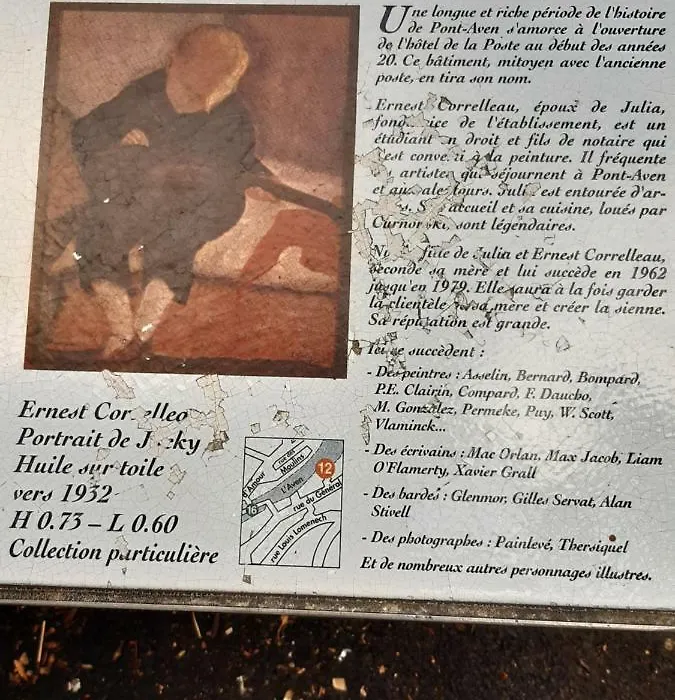 Une longue et riche période de l'histoire
de Pont-Aven s'amorce à l'ouverture
de l'hôtel de la Poste au début des années
20. Ce bâtiment, mitoyen avec l'ancienne
poste, en tira son nom.
Ernest Correlleau, époux de Julia,
de l'établissement, est un
étudiant en droit et fils de notaire qui
à la peinture. Il fréquente
artistes qui séjournent à Pont-Aven
et est entourée d'ar-
accueil et sa cuisine, loués par
sont légendaires.
fille de Julia et Ernest Correlleau,
seconde sa mère et lui succède en 1962
jusqu'en 1979. Elle saura à la fois garder
la clientèle sa mère et créer la sienne.
Sa réputation est grande.
Ici se succèdent :
- Des peintres : Asselin, Bernard, Bompard,
P.E. Clairin, Compard, F. Daucho,
M. Gonzalez, Permeke, Puy, W. Scott,
Vlaminck...
- Des écrivains : Mac Orlan, Max Jacob, Liam
O'Flamerty, Xavier Grall
- Des bardes : Glenmor, Gilles Servat, Alan
Stivell
- Des photographes : Painlevé, Thersiquel
Et de nombreux autres personnages illustres.
Ernest
Portrait de
Huile sur toile
vers 1932
H 0.73 – L 0.60
Collection particulière
rue des
Moulins
12
d'Amour
l'Aven
rue du Général
16
rue Louis Lomenech